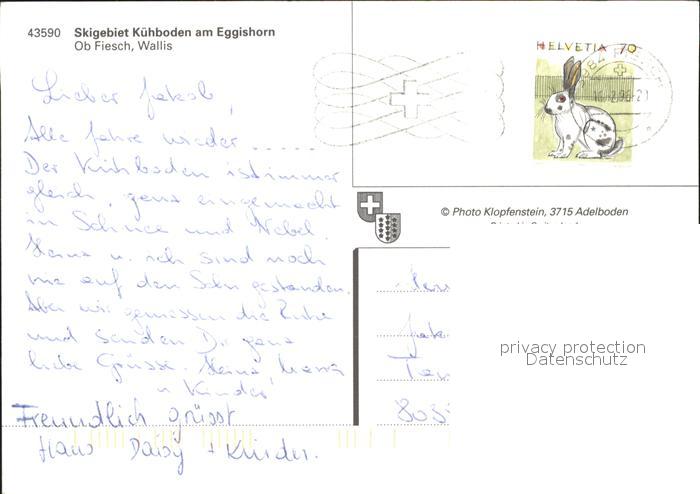 43590 Skigebiet Kühboden am Eggishorn
Ob Fiesch, Wallis
HELVETIA 70
Lieber Jakob,
Alle Jahre wieder .....
Der Kühboden ist immer
gleich, ganz eingemacht
in Schnee und Nebel.
Hans u. ich sind noch
nie auf den Skiern gestanden.
Aber wir geniessen die Ruhe
und senden Dir ganz
liebe Grüsse. Heinz,
u Kinder
Freundlich grüsst
Hans Daisy + Kinder.
© Photo Klopfenstein, 3715 Adelboden
privacy protection
Datenschutz